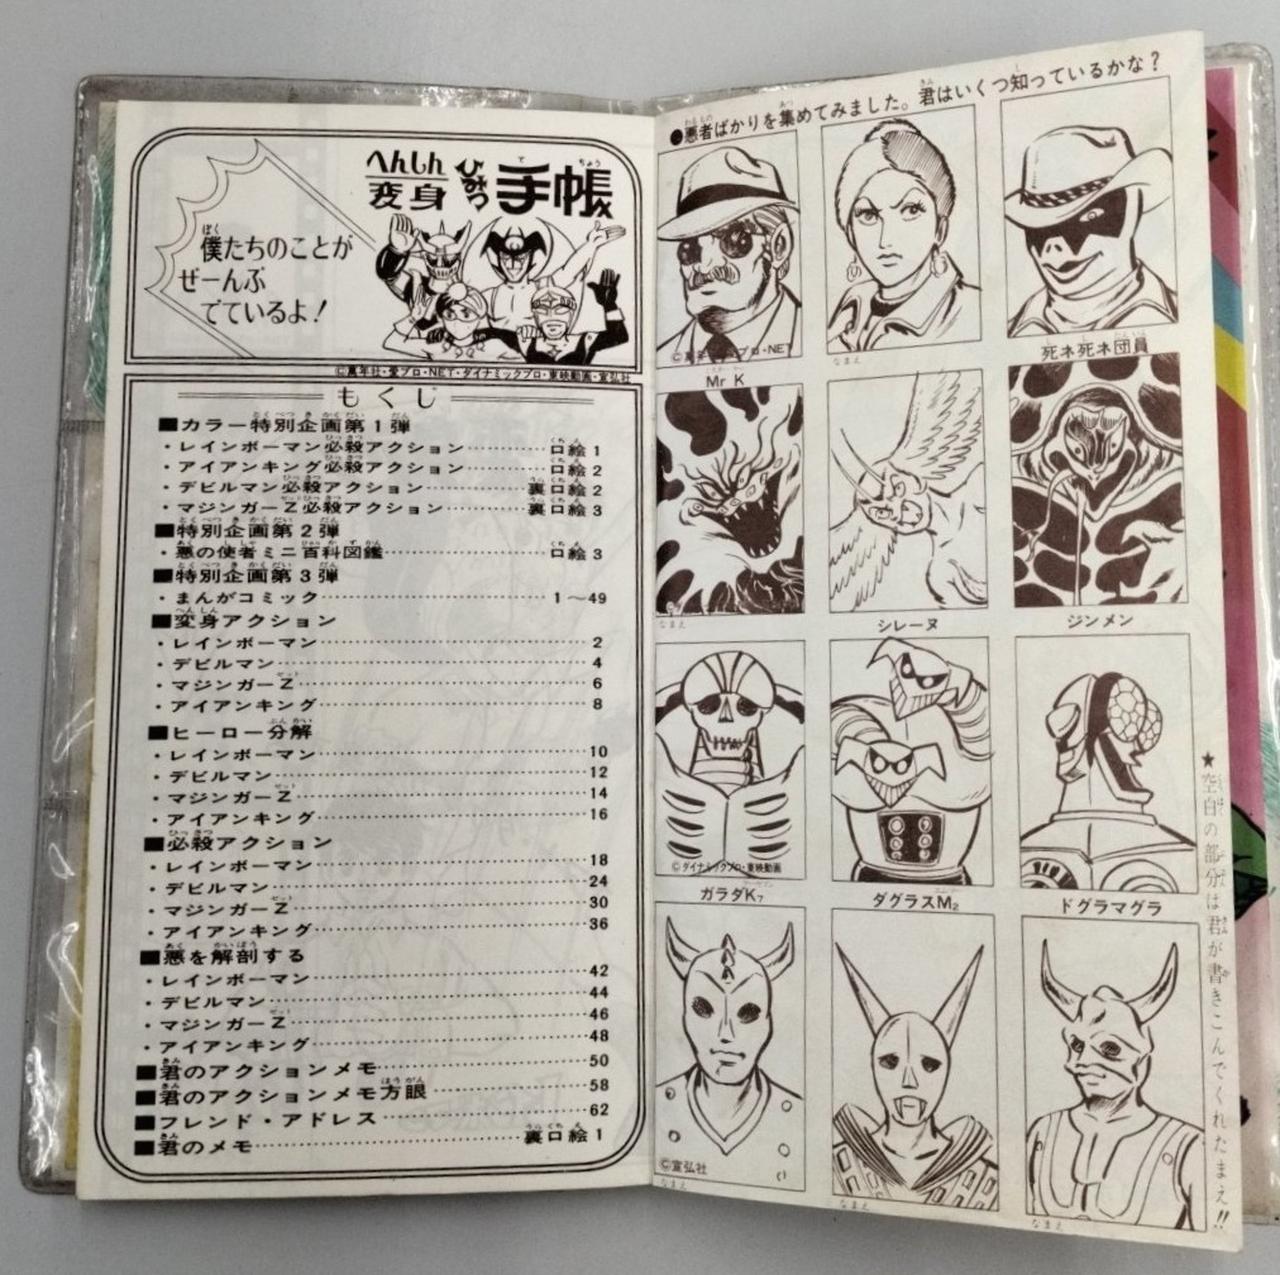 へんしん
変身ひみつ手帳
僕たちのことが
ぜーんぶ
でているよ!
©萬年社・愛プロ・NET・ダイナミックプロ・東映動画・宣弘社
もくじ
■カラー特別企画第1弾
・レインボーマン必殺アクション…………口絵1
・アイアンキング必殺アクション…………口絵2
・デビルマン必殺アクション…………裏口絵2
・マジンガーZ必殺アクション…………裏口絵3
■特別企画第2弾
・悪の使者ミニ百科図鑑…………口絵3
■特別企画第3弾
・まんがコミック…………1〜49
■変身アクション
・レインボーマン…………2
・デビルマン…………4
・マジンガーZ…………6
・アイアンキング…………8
■ヒーロー分解
・レインボーマン…………10
・デビルマン…………12
・マジンガーZ…………14
・アイアンキング…………16
■必殺アクション
・レインボーマン…………18
・デビルマン…………24
・マジンガーZ…………30
・アイアンキング…………36
■悪を解剖する
・レインボーマン…………42
・デビルマン…………44
・マジンガーZ…………46
・アイアンキング…………48
■君のアクションメモ…………50
■君のアクションメモ方眼…………58
■フレンド・アドレス…………62
■君のメモ…………裏口絵1
●悪者ばかりを集めてみました。君はいくつ知っているかな?
Mr K
なまえ
死ネ死ネ団員
なまえ
シレーヌ
ジンメン
©ダイナミックプロ・東映動画
ガラダK7
ダグラスM2
ドグラマグラ
©宣弘社
なまえ
なまえ
なまえ
★空白の部分は君が書きこんでくれたまえ!!